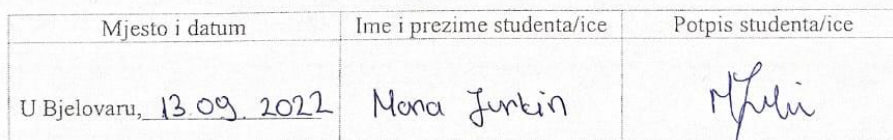 Mjesto i datum Ime i prezime studenta/ice Potpis studenta/ice
U Bjelovaru, 13.09.2022 Mona Jurkin